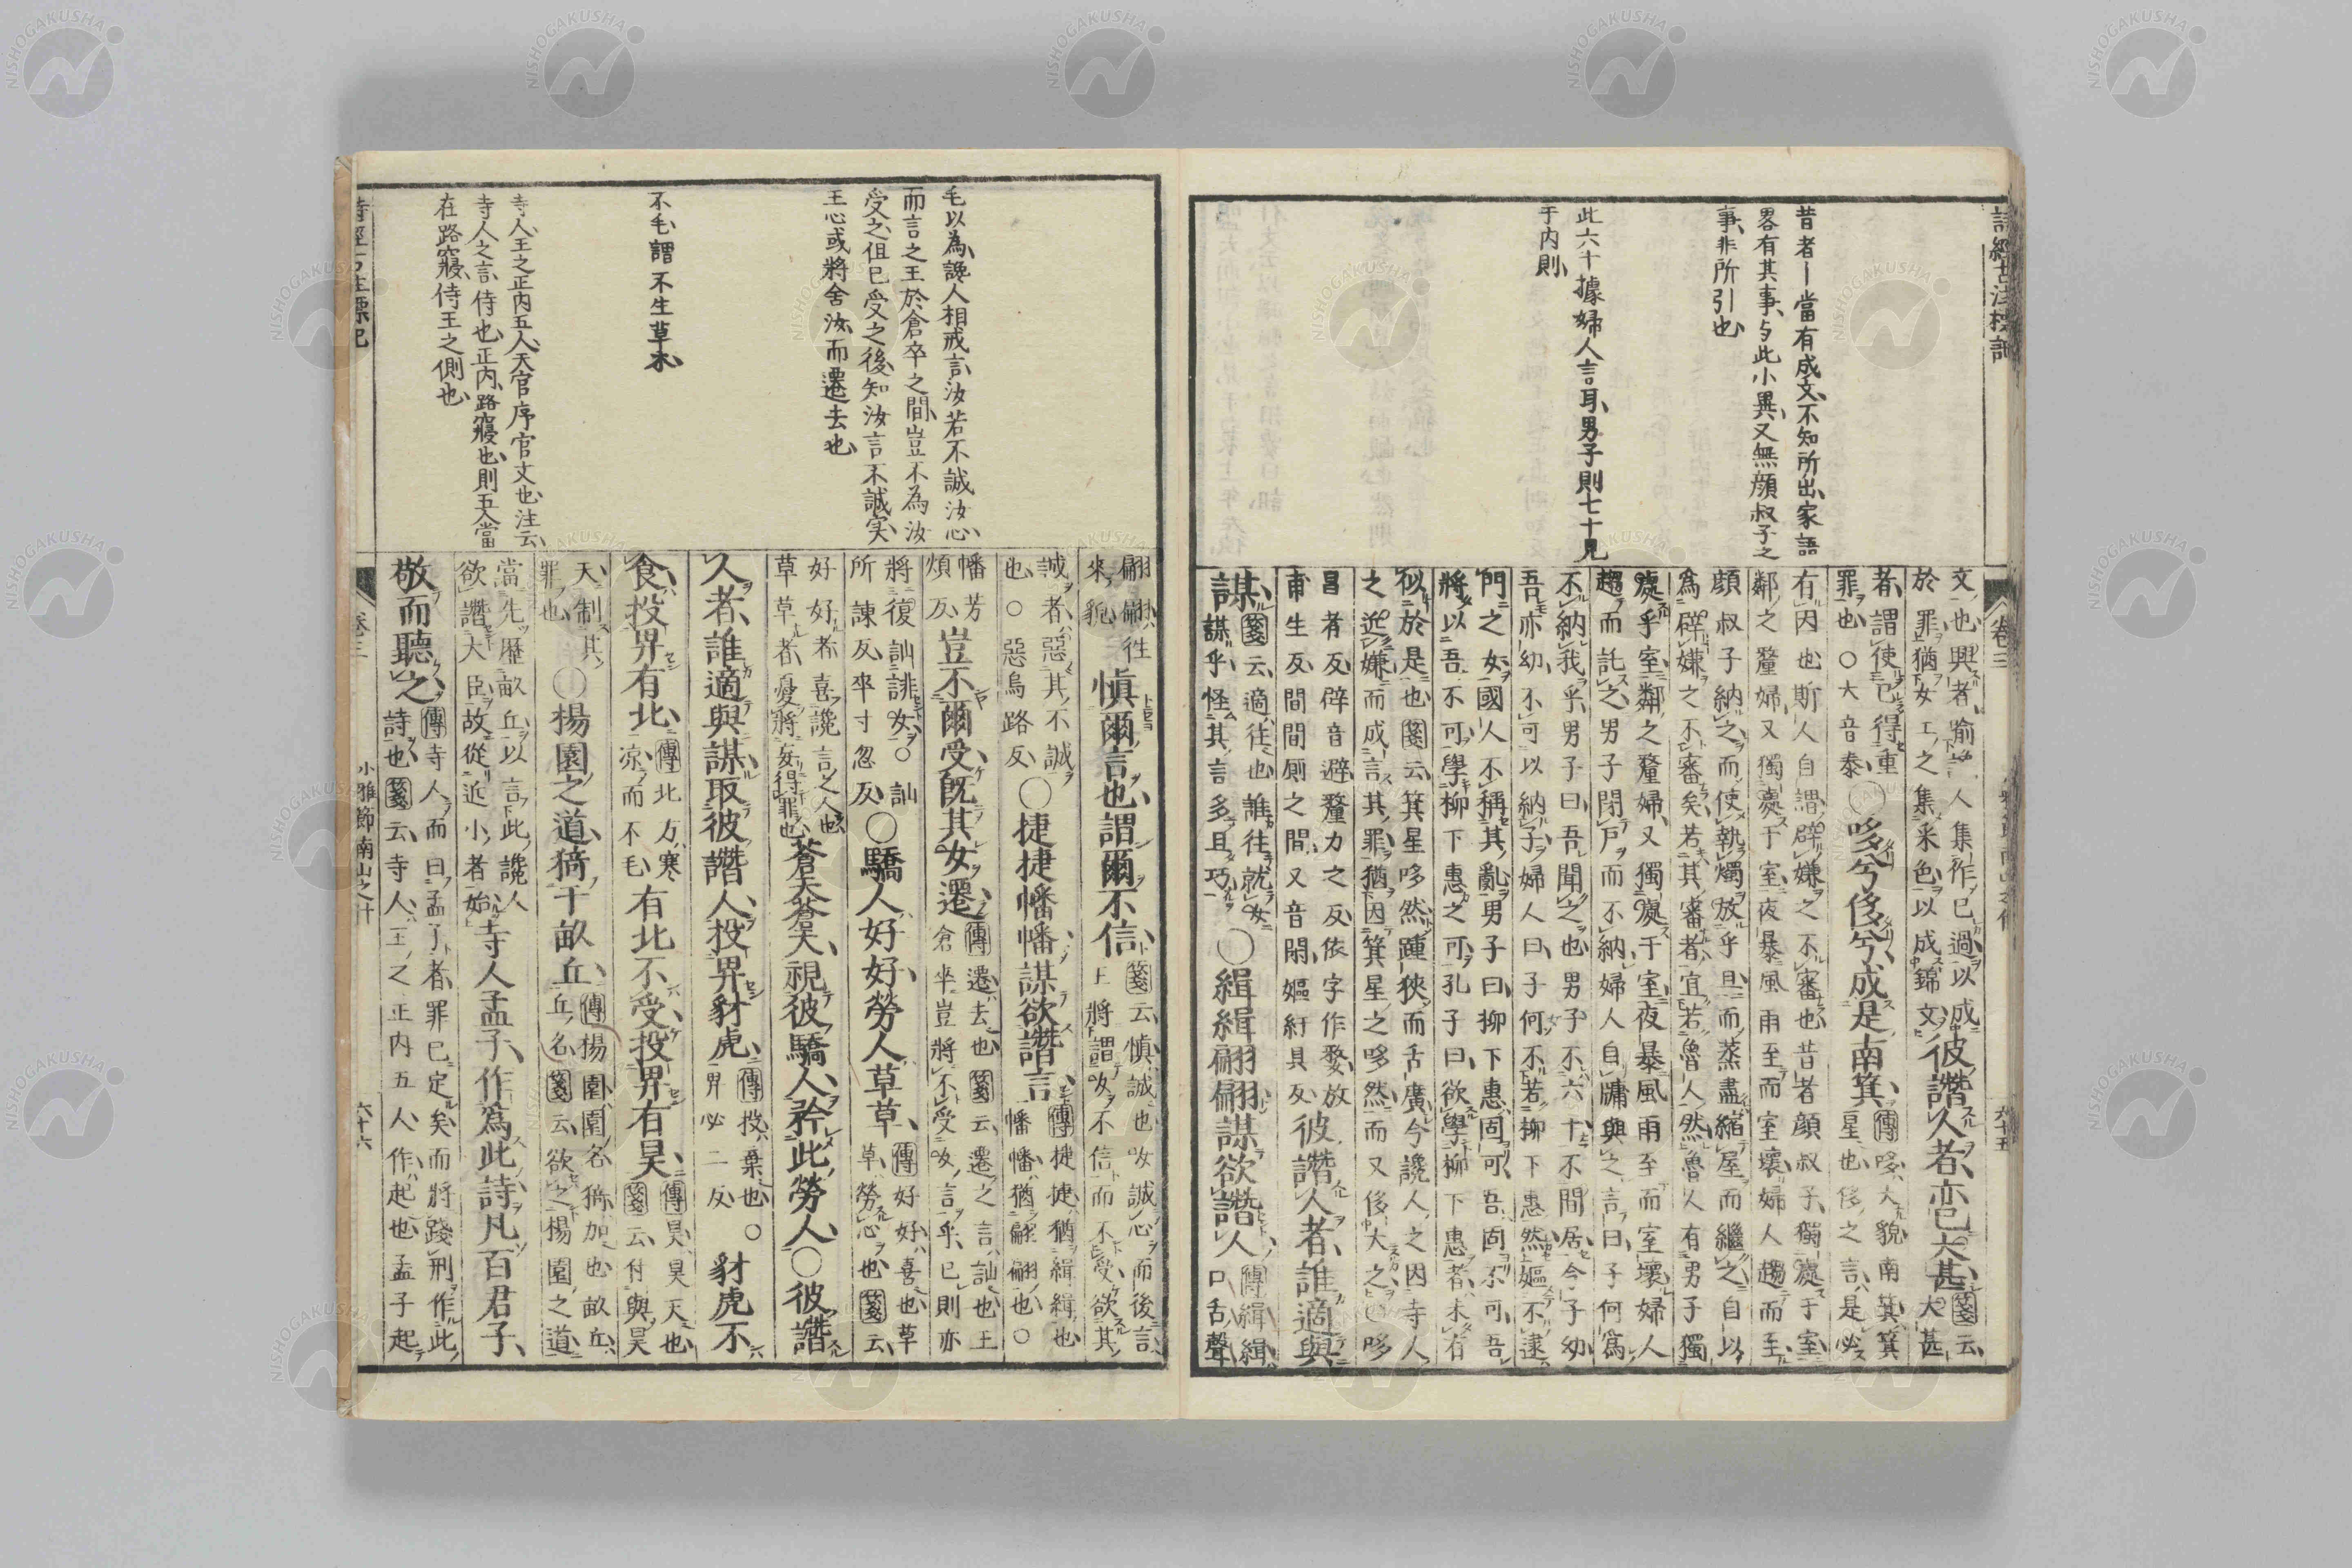 詩經古注標記
昔者―當有成文、不知所出、家語
畧有其事、与此小異、又無顔叔子之
事、非所引也
此六十據婦人言耳、男子則七十見
于内則、
卷三
六十五
文也、興者喻讒人集作己過以成
於罪、猶女工之集采色以成錦文、
彼譖人者、亦已大甚、
箋云大甚
者、謂使己得重
罪也、○大音泰、
○哆兮侈兮、成是南箕、
傳哆大貌南箕箕
星也侈之言是必
有因也斯人自謂辟嫌之不審也昔者顔叔子獨處于室
鄰之釐婦又獨處于室夜暴風雨至而室壞婦人趨而至
顔叔子納之而使執燭放乎旦而蒸盡縮屋而繼之自以
爲辟嫌之不審矣若其審者宜若魯人然魯人有男子獨
處乎室鄰之釐婦又獨處于室夜暴風雨至而室壞婦人
趨而託之男子閉戸而不納婦人自牖與之言曰子何爲
不納我乎男子曰吾聞之也男子不六十不間居今子幼
吾亦幼不可以納子婦人曰子何不若柳下惠然嫗不逮
門之女國人不稱其亂男子曰柳下惠固可吾固不可吾
將以吾不可學柳下惠之可孔子曰欲學柳下惠者未有
似於是也箋云箕星哆然踵狹而舌廣今讒人之因寺人
之近嫌而成言其罪猶因箕星之哆然而又侈大之○哆
昌者反辟音避釐力之反依字作嫠放
甫生反間間厠之間又音閑嫗紆具反
彼譖人者、誰適與
謀、
箋云適往也誰往就女
謀乎怪其言多且巧
○緝緝翩翩、謀欲譖人
傳緝緝口舌聲
翩翩往
來貌
愼爾言也、謂爾不信、
箋云愼誠也女誠心而後言
王將謂女不信而不受欲其
誠者惡其不誠
也○惡烏路反
○捷捷幡幡、謀欲譖言、
傳捷捷猶緝緝也
幡幡猶翩翩也○
幡芳
煩反
豈不爾受、既其女遷、
傳遷去也箋云遷之言訕也王
倉卒豈將不受女言乎已則亦
將復訕誹女○訕
所諫反卒寸忽反
○驕人好好、勞人草草、
傳好好喜也草
草勞心也箋云
好好者喜讒言之人也
草草者憂將妄得罪也
蒼天蒼天、視彼驕人、矜此勞人、○彼譖
人者、誰適與謀、取彼譖人、投畀豺虎、
傳投棄也○
畀必二反
豺虎不
食、投畀有北、
傳北方寒
凉而不毛
有北不受、投畀有昊、
傳昊昊天也
箋云付與昊
天制其
罪也
○楊園之道、猗于畝丘、
傳楊園園名猗加也畝丘
丘名箋云欲之楊園之道
當先歷畝丘以言此讒人
欲譖大臣故從近小者始
寺人孟子、作爲此詩、凡百君子、
敬而聽之、
傳寺人而曰孟子者罪已定矣而將踐刑作此
詩也箋云寺人王之正内五人作起也孟子起
毛以為讒人相戒言汝若不誠汝心
而言之王於倉卒之間豈不為汝
受之但已受之後、知汝言不誠実、
王心或將舍汝、而遷去也
不毛謂不生草木、
寺人、王之正内五人、天官序官文也、注云、
寺人之言侍也、正内、路寢也、則五人當
在路寢、侍王之側也
詩經古注標記
卷三
小雅節南山之什
六十六
NISHOGAKUSHA